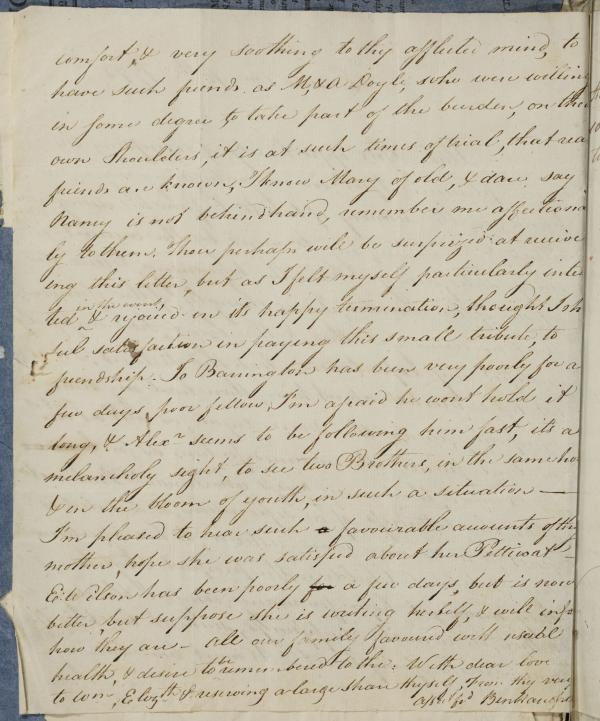 comfort, & very soothing to thy afflicted mind, to
have such friends as M, & A Doyle, who were willing
in some degree to take part of the burden, on their
own Shoulders, it is at such times of trial, that rea
friends are known, I know Mary of old, & dare say
Nancy is not behindhand, remember me affectiona
ly to them. Thou perhaps will be surprized at receiv
ing this letter, but as I felt myself particularly inte
ted in the event, & rejoiced in its happy termination, thought I sh
feel satisfaction in paying this small tribute, to
friendship. Jo Barrington has been very poorly for a
few days, poor fellow, I'm afraid he wont hold it
long, & Alexr seems to be following him fast, its a
melancholy sight, to see two Brothers, in the same ho
& in the bloom of youth, in such a situation —
I'm pleased to hear such a favourable accounts of th
mother, hope she was satisfied about her Petticoat
E: Wilson has been poorly for a few days, but is now
better but suppose she is writing herself, & will info
how they are - All our family favoured with usual
health, & desire to be remembered to thee. With dear love
to Eliz.th & reserving a large share thyself From thy very